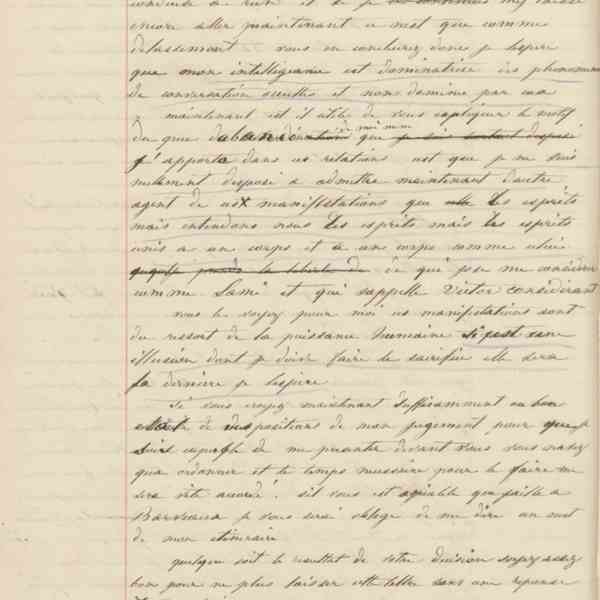 encore aller maintenant ce n'est que comme
delassement vous en conclurez donc je l'espere
que mon intelligeance est dominatrice des phenomenes
de conversation occultes et non dominée par eux
maintenant est il utile de vous expliquer le motif
du que de moi meme que je suis surtout disposé
j' apporta dans ces relations c'est que je ne suis
nullement disposé a admettre maintenant d'autre
agent de ces manifestations que les esprits
mais entendons nous Les esprits mais les esprits
unis a un corps et a un corps comme celui
la liberté de de qui j'ose me considerer
comme l'ami et qui s'appelle Victor considerant
vous le voyez pour moi ces manifestations sont
du ressort de la puissance humaine si c'est une
illusion dont je doive faire le sacrifice elle sera
la derniere je l'espere
Si vous croyez maintenant suffisamment au bon
de dispositions de mon jugement pour que je
sois capable de me presenter devant vous vous n'avez
qua ordonner et le temps necessaire pour le faire me
sera vite accordé. s'il vous est agréable que j'aille a
je vous serai obligé de me dire un mot
de mon itineraire
quelque soit le resultat de votre decision soyez assez
bon pour ne plus laisser cette lettre sans une reponse